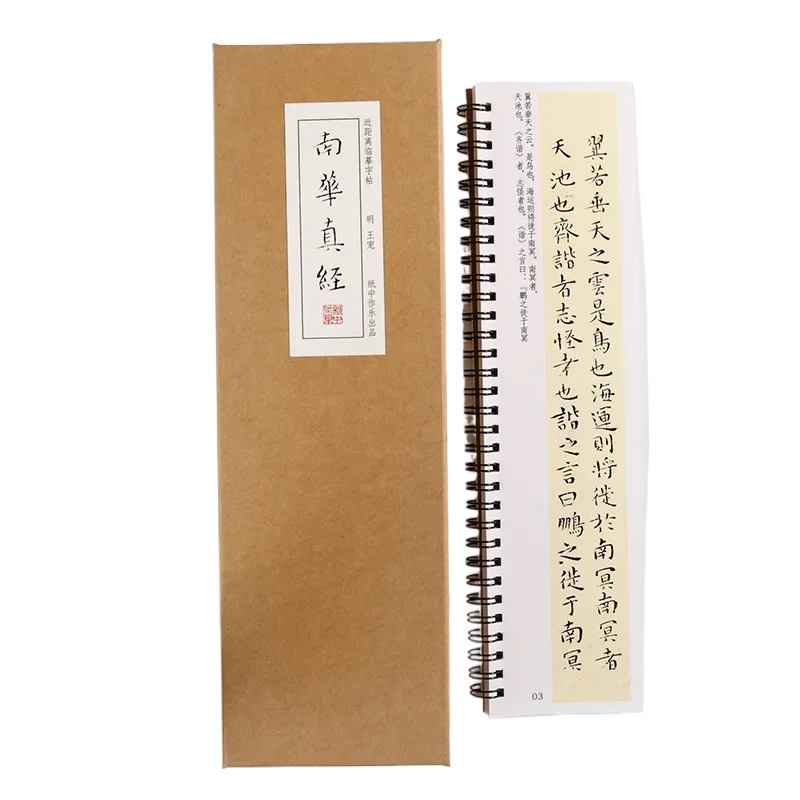 近距离临摹字·帖 明 王宠 纸中作乐出品
南華真経
翼若垂天之云。是鸟也，海运则将徙于南冥。南冥者，
天池也。《齐谐》者，志怪者也。《谐》之言曰：『鹏之徙于南冥
翼若垂天之雲是鳥也海運則将徙於南冥南冥者
天池也齊諧者志怪者也諧之言曰鵬之徙于南冥
03